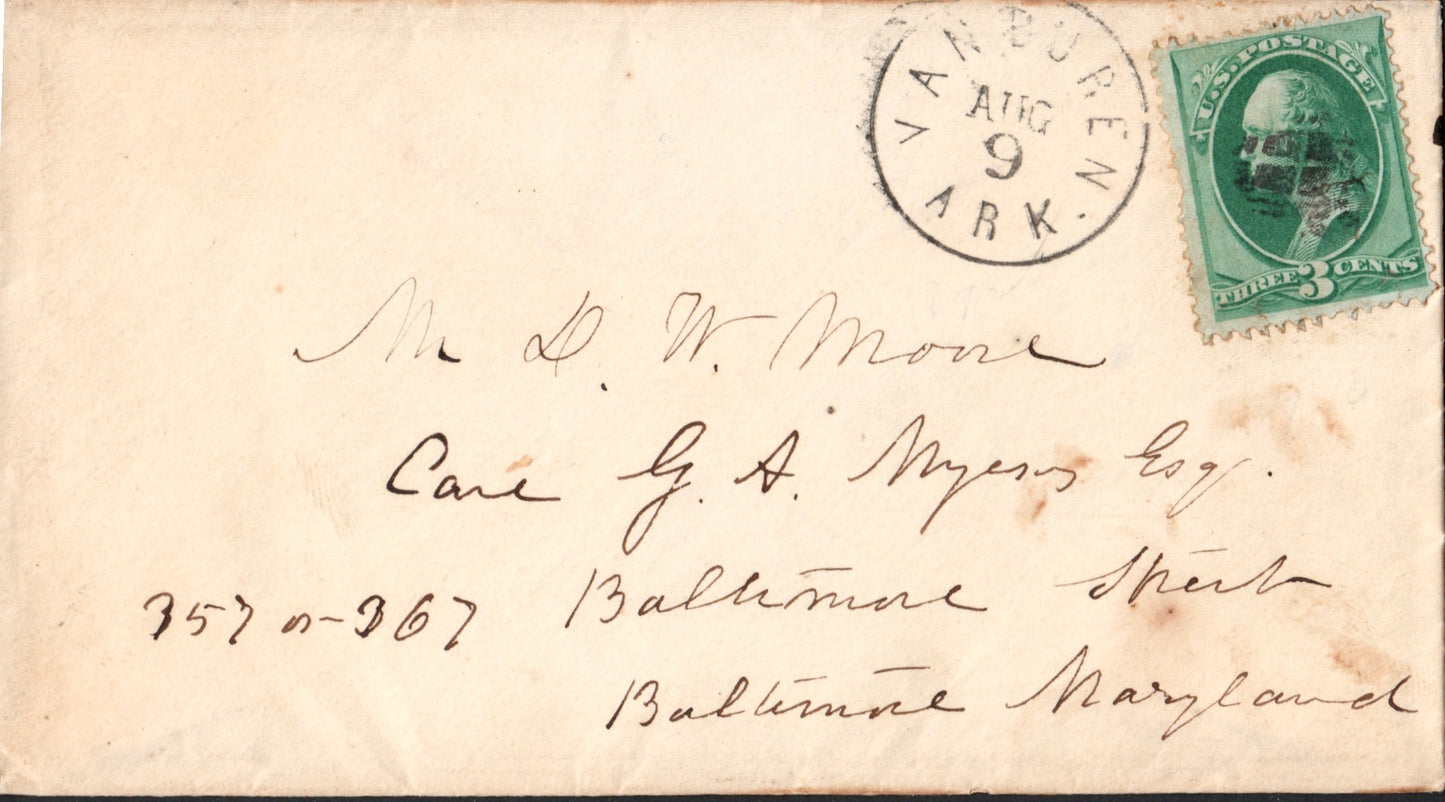 VAN BUREN.
AUG
9
ARK.
U.S. POSTAGE
THREE 3 CENTS
Mr D. W. Moore
Care G. A. Myers Esq.
357 or 367 Baltimore Street
Baltimore Maryland